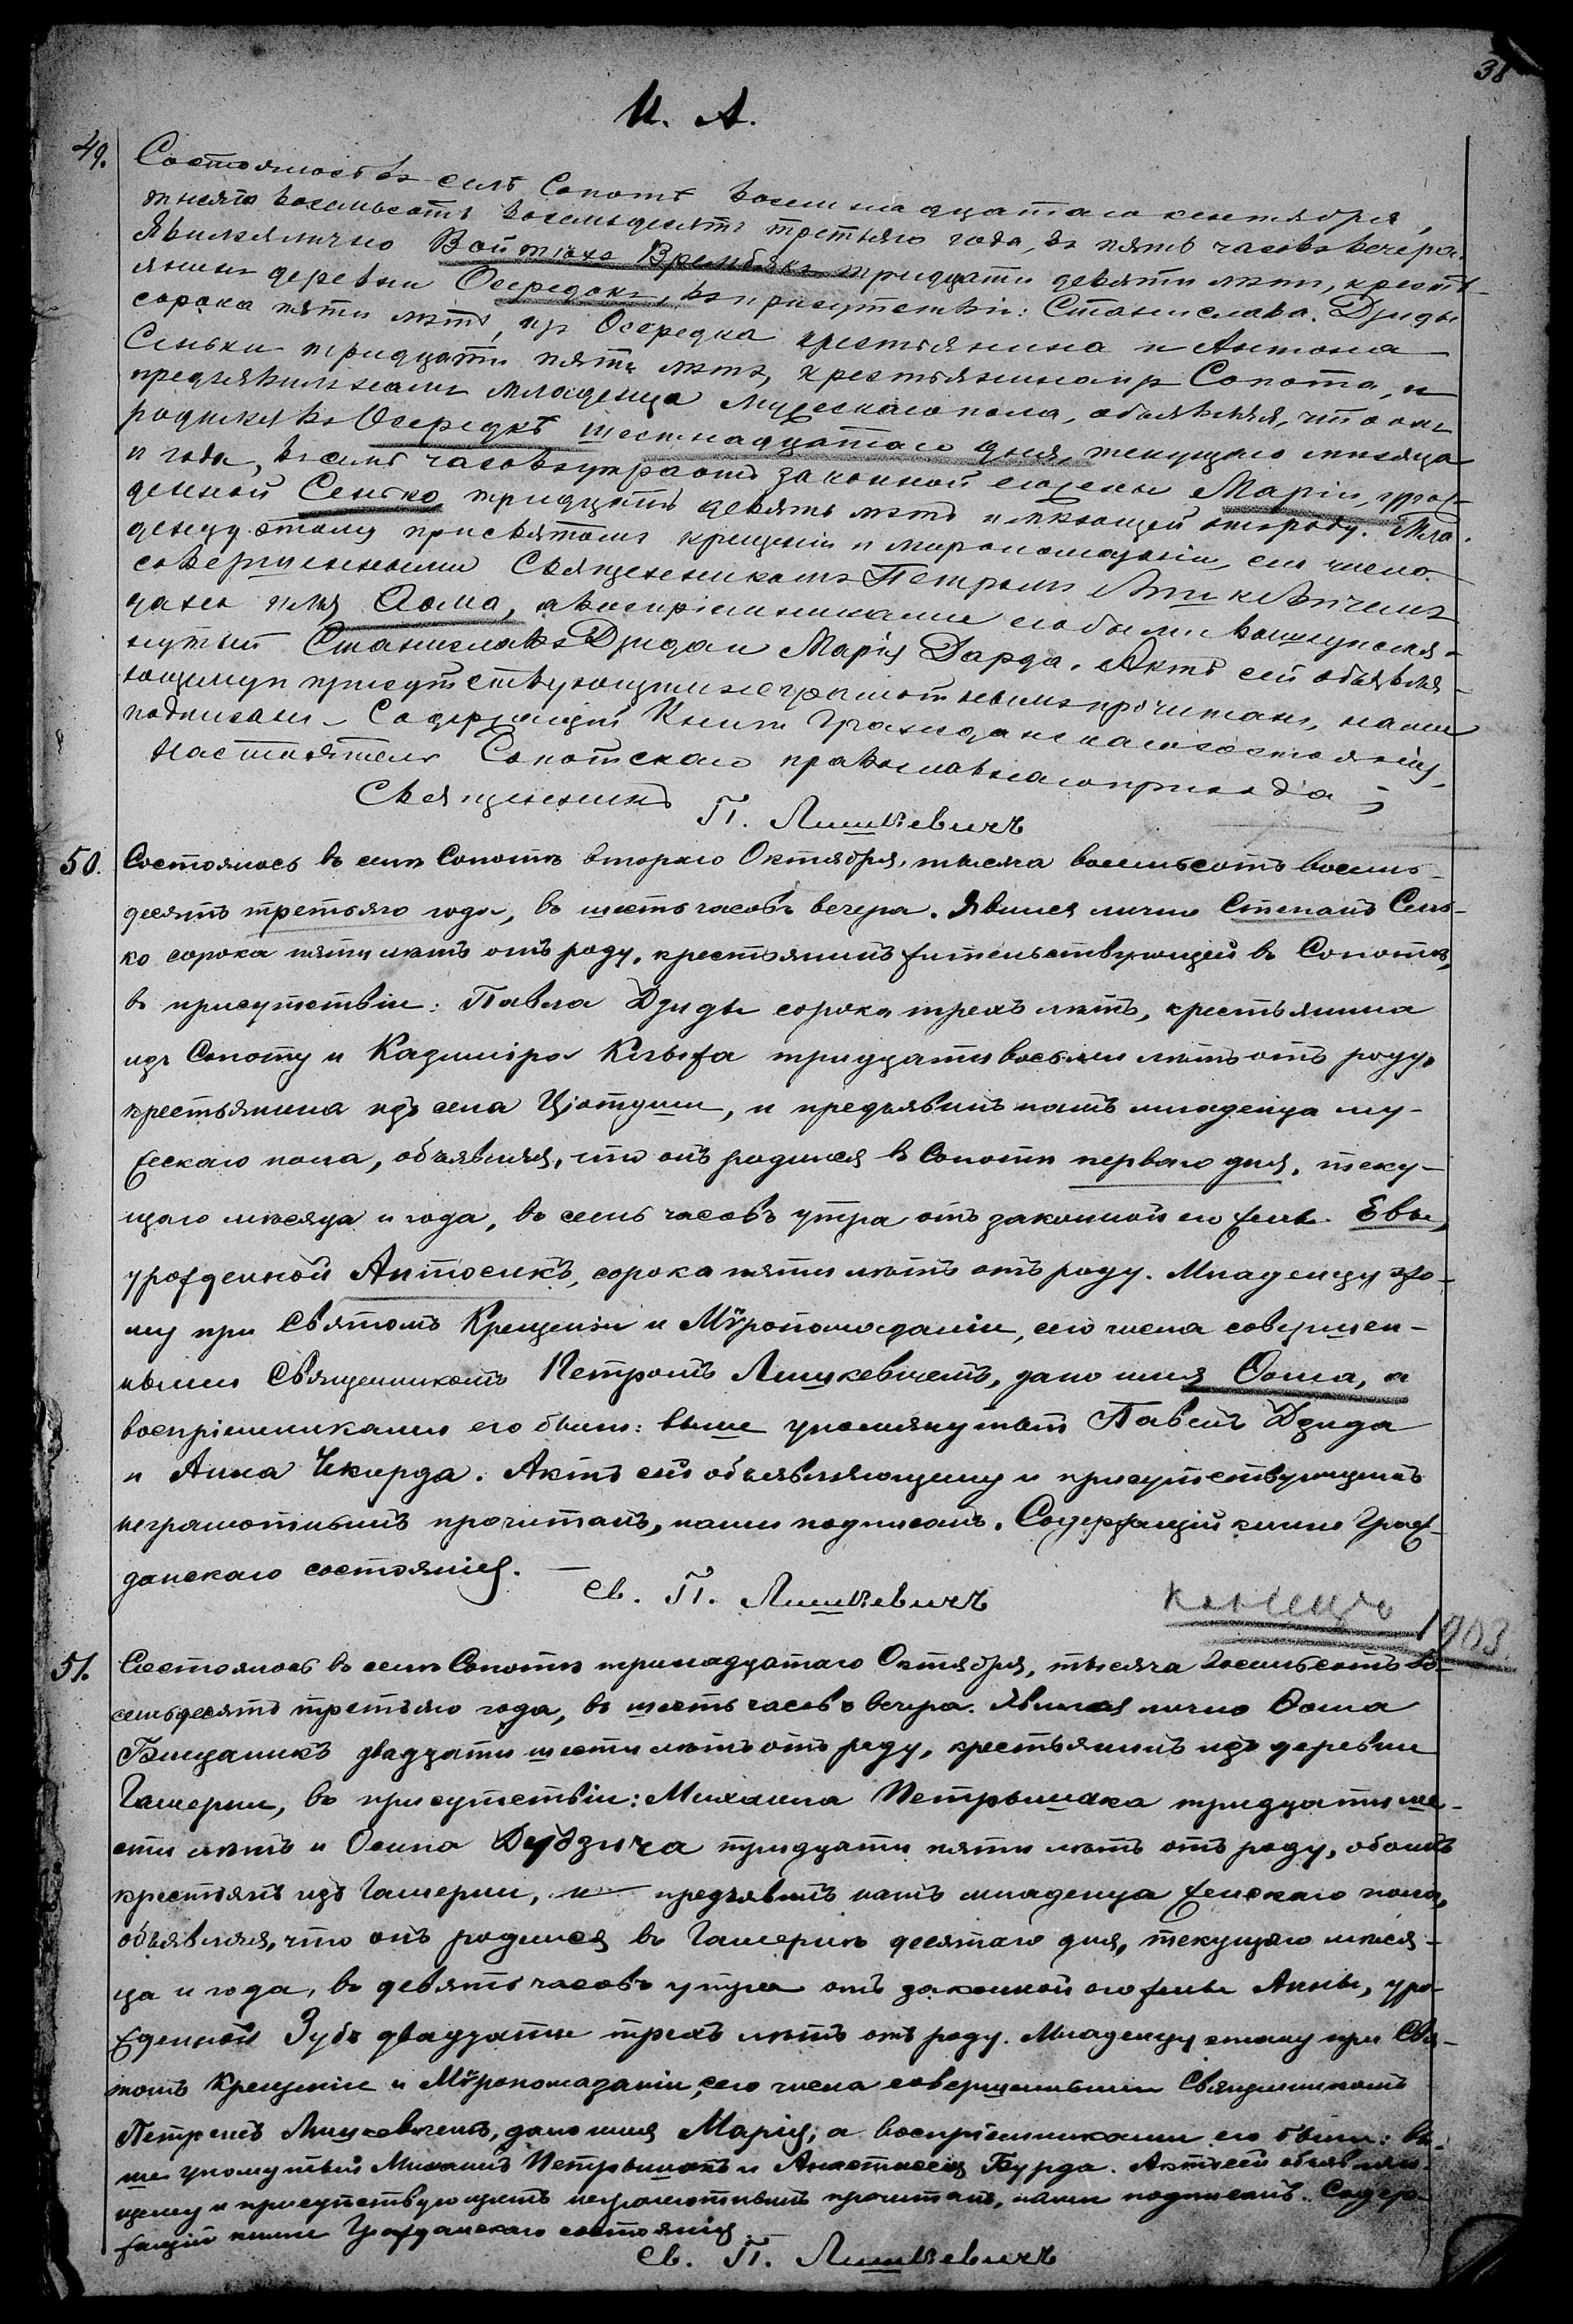 38
И. А.
49. Состоялось въ селѣ Сопотѣ восемнадцатаго сентября,
тысяча восемьсотъ восемьдесятъ третьяго года, въ пять часовъ вечера.
Явился лично Войтѣхъ Врембякъ тридцати девяти лѣтъ, кресть-
янинъ деревни Осередокъ, въ присутствіи: Станислава Дзиды
сорока пяти лѣтъ, изъ Осередка крестьянина и Антона
Сеньки тридцати пяти лѣтъ, крестьянина изъ Сопота, и
предъявилъ намъ младенца мужескаго пола, объявляя, что онъ
родился въ Осередкѣ шестнадцатаго дня, текущаго мѣсяца
и года, въ семь часовъ утра отъ законной его жены Маріи, урож-
денной Сенько, тридцать девять лѣтъ имѣющей отъ роду. Мла-
денцу этому при святомъ крещеніи и миропомазаніи, сего числа
совершенными Священникомъ Петромъ Лишкевичемъ
дано имя Ѳома, а воспріемниками его были вышеупомя-
нутый Станиславъ Дзида и Марія Дарда. Актъ сей объявля-
ющему и присутствующимъ неграмотнымъ прочитанъ, нами
подписанъ. Содержащій Книги Гражданскаго состоянія,
Настоятель Сопотскаго православнаго прихода,
Священникъ П. Лишкевичъ
50. Состоялось въ селѣ Сопотѣ втораго Октября, тысяча восемьсотъ восемь-
десятъ третьяго года, въ шесть часовъ вечера. Явился лично Степанъ Сень-
ко сорока пяти лѣтъ отъ роду, крестьянинъ жительствующій въ Сопотѣ,
въ присутствіи: Павла Дзиды сорока трехъ лѣтъ, крестьянина
изъ Сопоту и Казиміра Кельжа тридцати восьми лѣтъ отъ роду,
крестьянина изъ села Цотуши, и предъявилъ намъ младенца му-
жескаго пола, объявляя, что онъ родился въ Сопотѣ перваго дня, теку-
щаго мѣсяца и года, въ семь часовъ утра отъ законной его жены Евы,
урожденной Антосикъ, сорока пяти лѣтъ отъ роду. Младенцу это-
му при Святомъ Крещеніи и Мѵропомазаніи, сего числа совершен-
ными Священникомъ Петромъ Лишкевичемъ, дано имя Ѳома, а
воспріемниками его были: выше упомянутый Павелъ Дзида
и Анна Чекирда. Актъ сей объявляющему и присутствующимъ
неграмотнымъ прочитанъ, нами подписанъ. Содержащій книги Граж-
данскаго состоянія. —
Св. П. Лишкевичъ
1903
51. Состоялось въ селѣ Сопотѣ тринадцатаго Октября, тысяча восемьсотъ во-
семьдесятъ третьяго года, въ шесть часовъ вечера. Явился лично Ѳома
Бещаникъ двадцати шести лѣтъ отъ роду, крестьянинъ изъ деревни
Гамерни, въ присутствіи: Михаила Петрышака тридцати ше-
сти лѣтъ и Осипа Дудзича тридцати пяти лѣтъ отъ роду, обоихъ
крестьянъ изъ Гамерни, и предъявилъ намъ младенца женскаго пола,
объявляя, что онъ родился въ Гамернѣ десятаго дня, текущаго мѣся-
ца и года, въ девять часовъ утра отъ законной его жены Анны, уро-
жденной Зубъ двадцати трехъ лѣтъ отъ роду. Младенцу этому при Свя-
томъ Крещеніи и Мѵропомазаніи, сего числа совершенными Священникомъ
Петромъ Лишкевичемъ, дано имя Марія, а воспріемниками его были: вы-
ше упомутый Михаилъ Петрышакъ и Анастасія Бурда. Актъ сей объявляю-
щему и присутствующимъ неграмотнымъ прочитанъ, нами подписанъ. Содер-
жащій книги Гражданскаго состоянія.
Св. П. Лишкевичъ